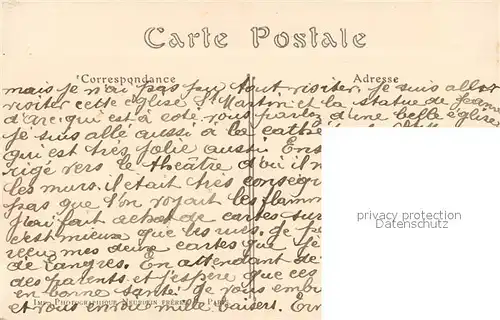 Carte Postale
Correspondance
Adresse
mais je n'ai pas pu tout visiter. je suis allé
visiter cette église St Martin et la statue de jeanne
d'arc qui est à coté vous parlez d'une belle église
je suis allé aussi à la cathé
qui est très jolie aussi Ens
rigé vers le théâtre d'où il n
les murs. il était très conseq
pas que l'on voyait les flamm
j'ai fait achat de cartes sur
c'est mieux que les rues. je p
reçu mes deux cartes que je
de Langres. En attendant de
des parents et j'espère que ces
en bonne santé je vous embr
et vous envoi mille baisers. Ern
Imp. Photographique Neurdein Frères Paris
privacy protection
Datenschutz